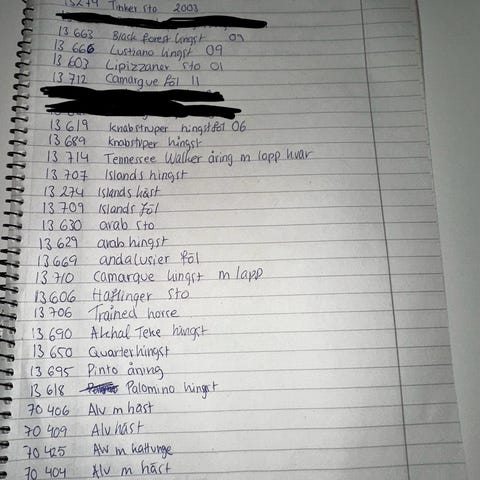 13279 Tinker sto 2003
13 663 Black forest hingst 09
13 666 Lustiano hingst 09
13 603 Lipizzaner sto 01
13 712 Camargue föl 11
13 619 Knabstruper hingstföl 06
13 689 Knabstruper hingst
13 714 Tennessee Walker åring m lapp kvar
13 707 Islands hingst
13 274 Islands häst
13 709 Islands föl
13 630 arab sto
13 629 arab hingst
13 669 andalusier föl
13 710 Camarque hingst m lapp
13 606 Haflinger sto
13 706 Trained horse
13 690 Akhal Teke hingst
13 650 Quarter hingst
13 695 Pinto åning
13 618 Palomino hingst
70 406 Alv m häst
70 409 Alv häst
70 425 Alv m kattunge
70 404 Alv m häst